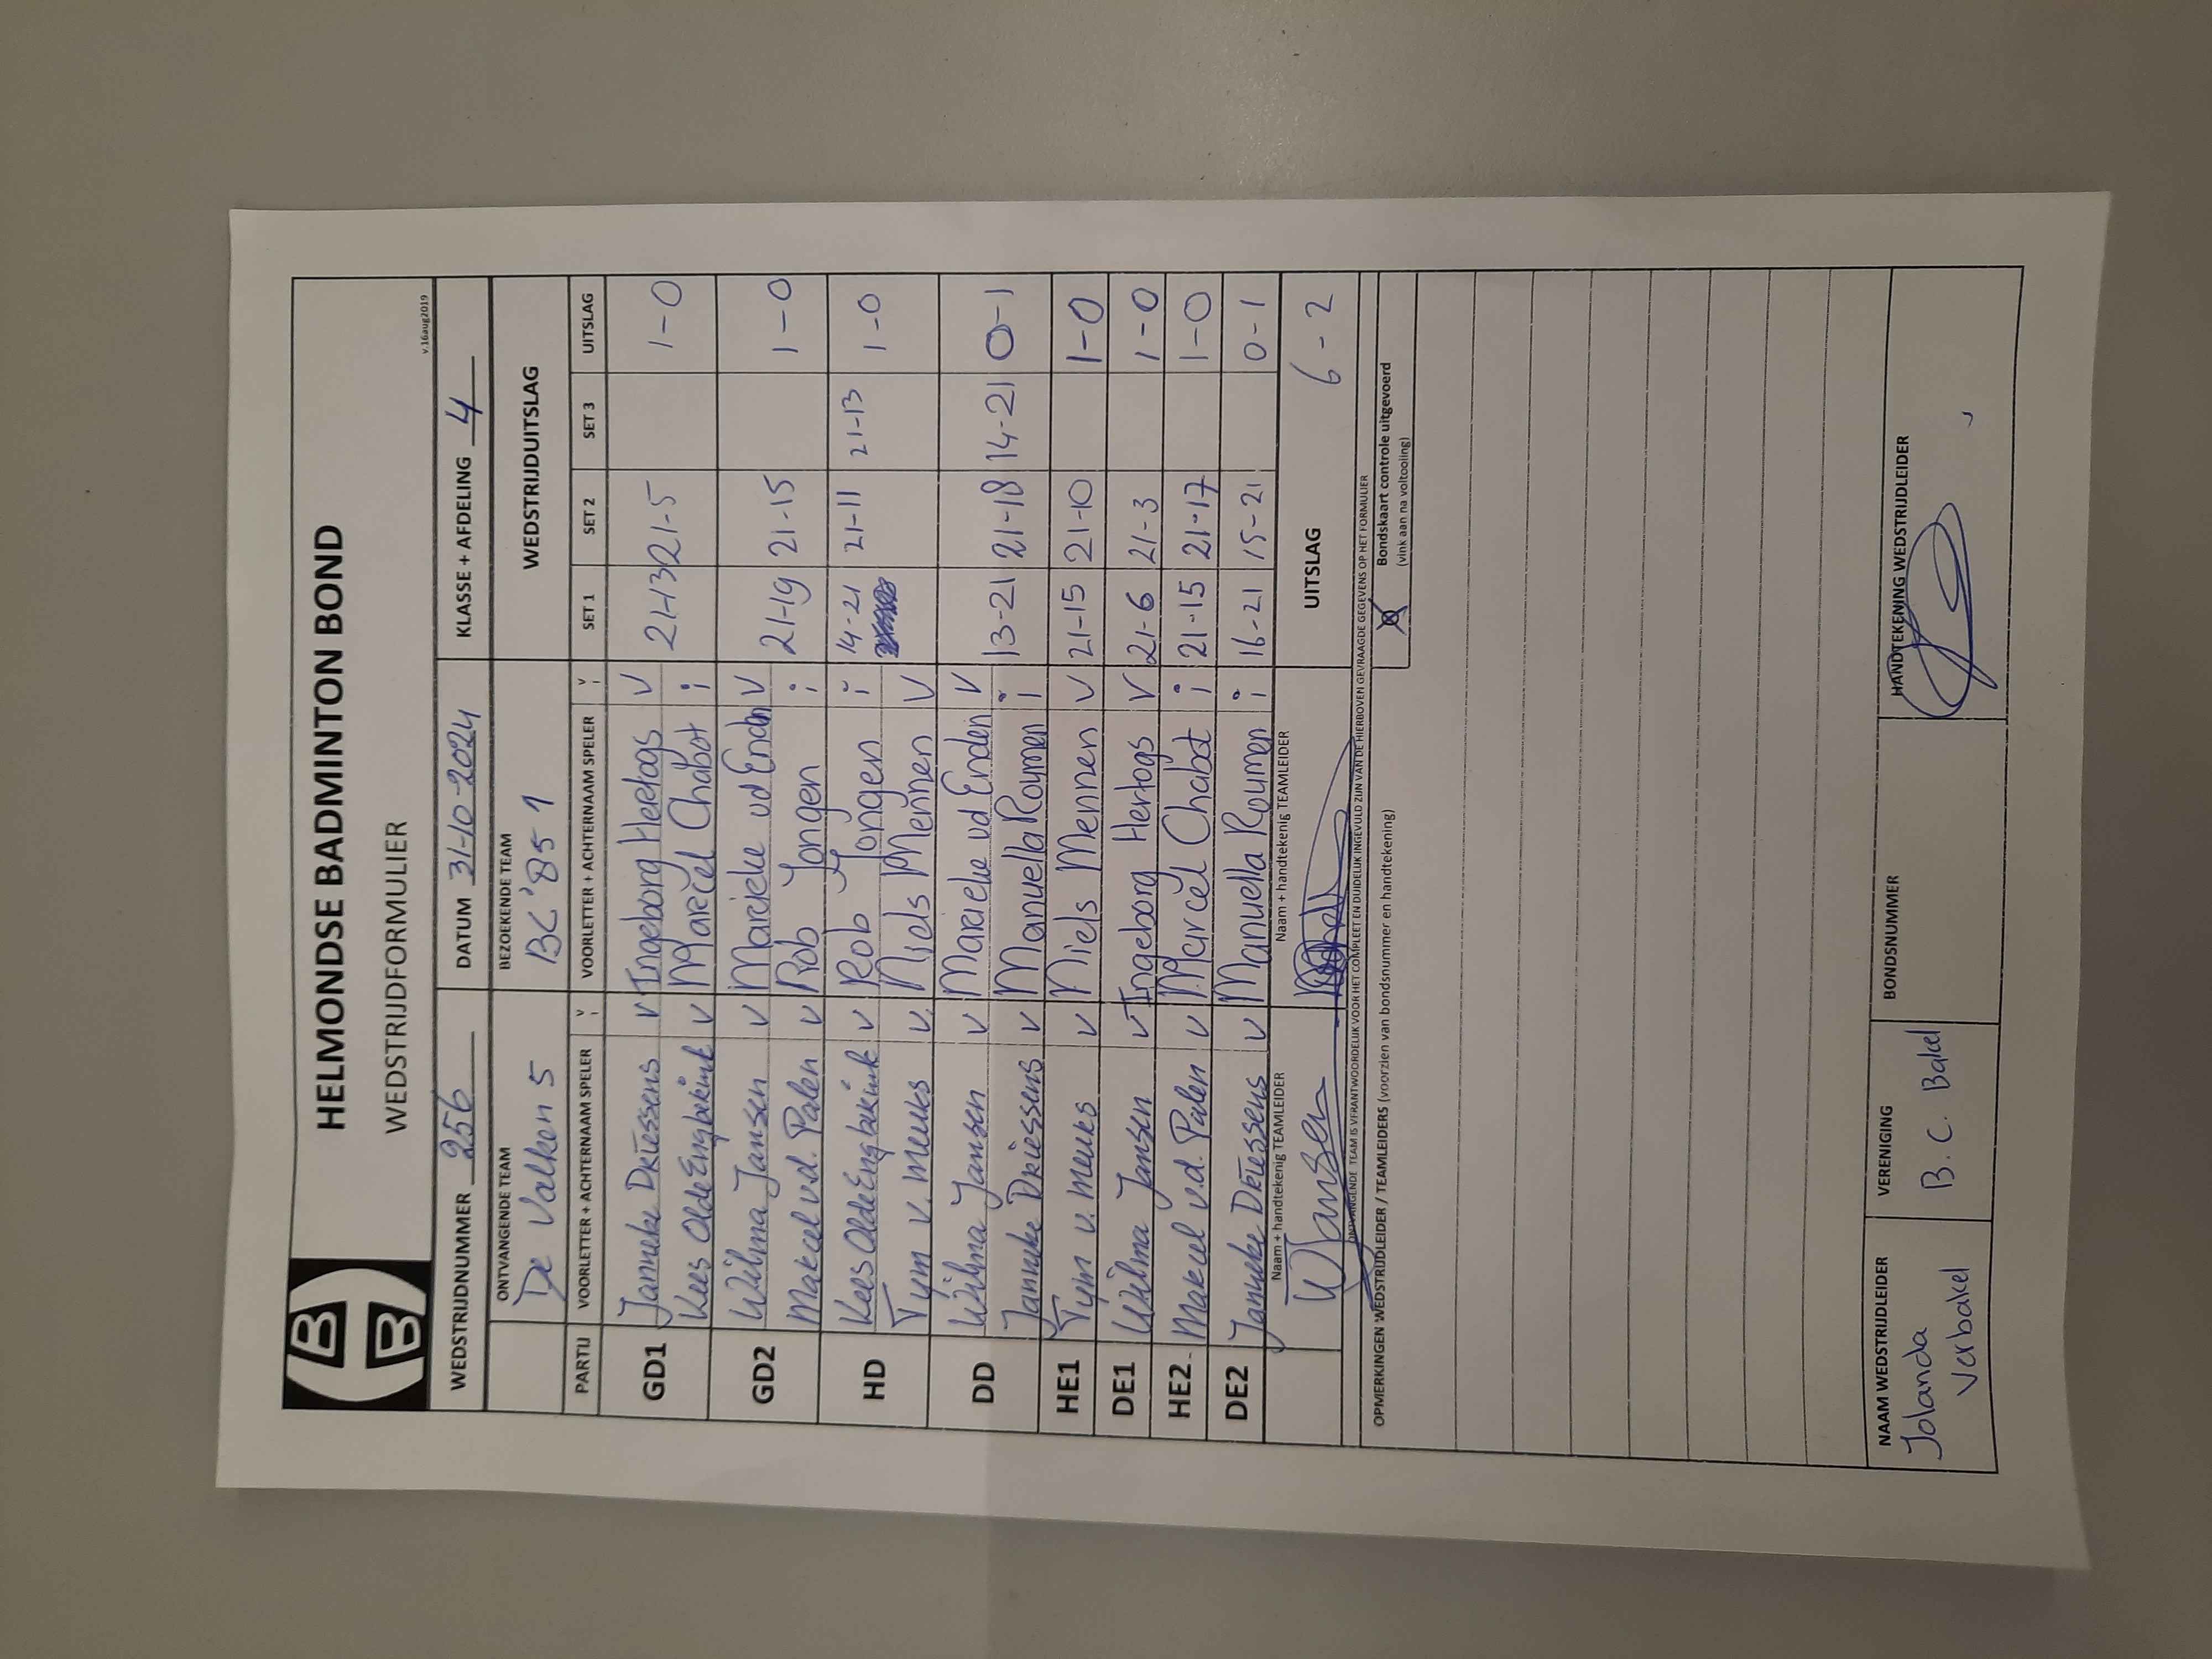 HELMONDSE BADMINTON BOND
WEDSTRIJDFORMULIER
v.16aug2019
WEDSTRIJDNUMMER 256 DATUM 31-10-2024 KLASSE + AFDELING 4
ONTVANGENDE TEAM BEZOEKENDE TEAM WEDSTRIJDUITSLAG
De Valken 5 BC '85 1
PARTIJ VOORLETTER + ACHTERNAAM SPELER V I VOORLETTER + ACHTERNAAM SPELER V I SET 1 SET 2 SET 3 UITSLAG
GD1 Janneke Driessens V Ingeborg Hertogs V 21-13 21-5 1-0
Kees Olde Engberink V Marcel Chabot i
GD2 Wilma Jansen V Marieke vd Enden V 21-19 21-15 1-0
Marcel v.d. Palen V Rob Jongen i
HD Kees Olde Engberink V Rob Jongen i 14-21 21-11 21-13 1-0
Tym v. Meuks V. Niels Mennen V
DD Wilma Jansen V Marieke vd Enden V
Janneke Driessens V Manuella Roumen i 13-21 21-18 14-21 0-1
HE1 Tym v. Meuks V Niels Mennen V 21-15 21-10 1-0
DE1 Wilma Jansen V Ingeborg Hertogs V 21-6 21-3 1-0
HE2 Marcel v.d. Palen V Marcel Chabot i 21-15 21-17 1-0
DE2 Janneke Driessens V Manuella Roumen i 16-21 15-21 0-1
Naam + handtekenig TEAMLEIDER Naam + handtekenig TEAMLEIDER UITSLAG 6-2
WJansen
ONTVANGENDE TEAM IS VERANTWOORDELIJK VOOR HET COMPLEET EN DUIDELIJK INGEVULD ZIJN VAN DE HIERBOVEN GEVRAAGDE GEGEVENS OP HET FORMULIER
OPMERKINGEN WEDSTRIJDLEIDER / TEAMLEIDERS (voorzien van bondsnummer en handtekening)
Bondskaart controle uitgevoerd
(vink aan na voltooiing)
NAAM WEDSTRIJDLEIDER VERENIGING BONDSNUMMER HANDTEKENING WEDSTRIJDLEIDER
Jolanda B.C. Bakel
Verbakel